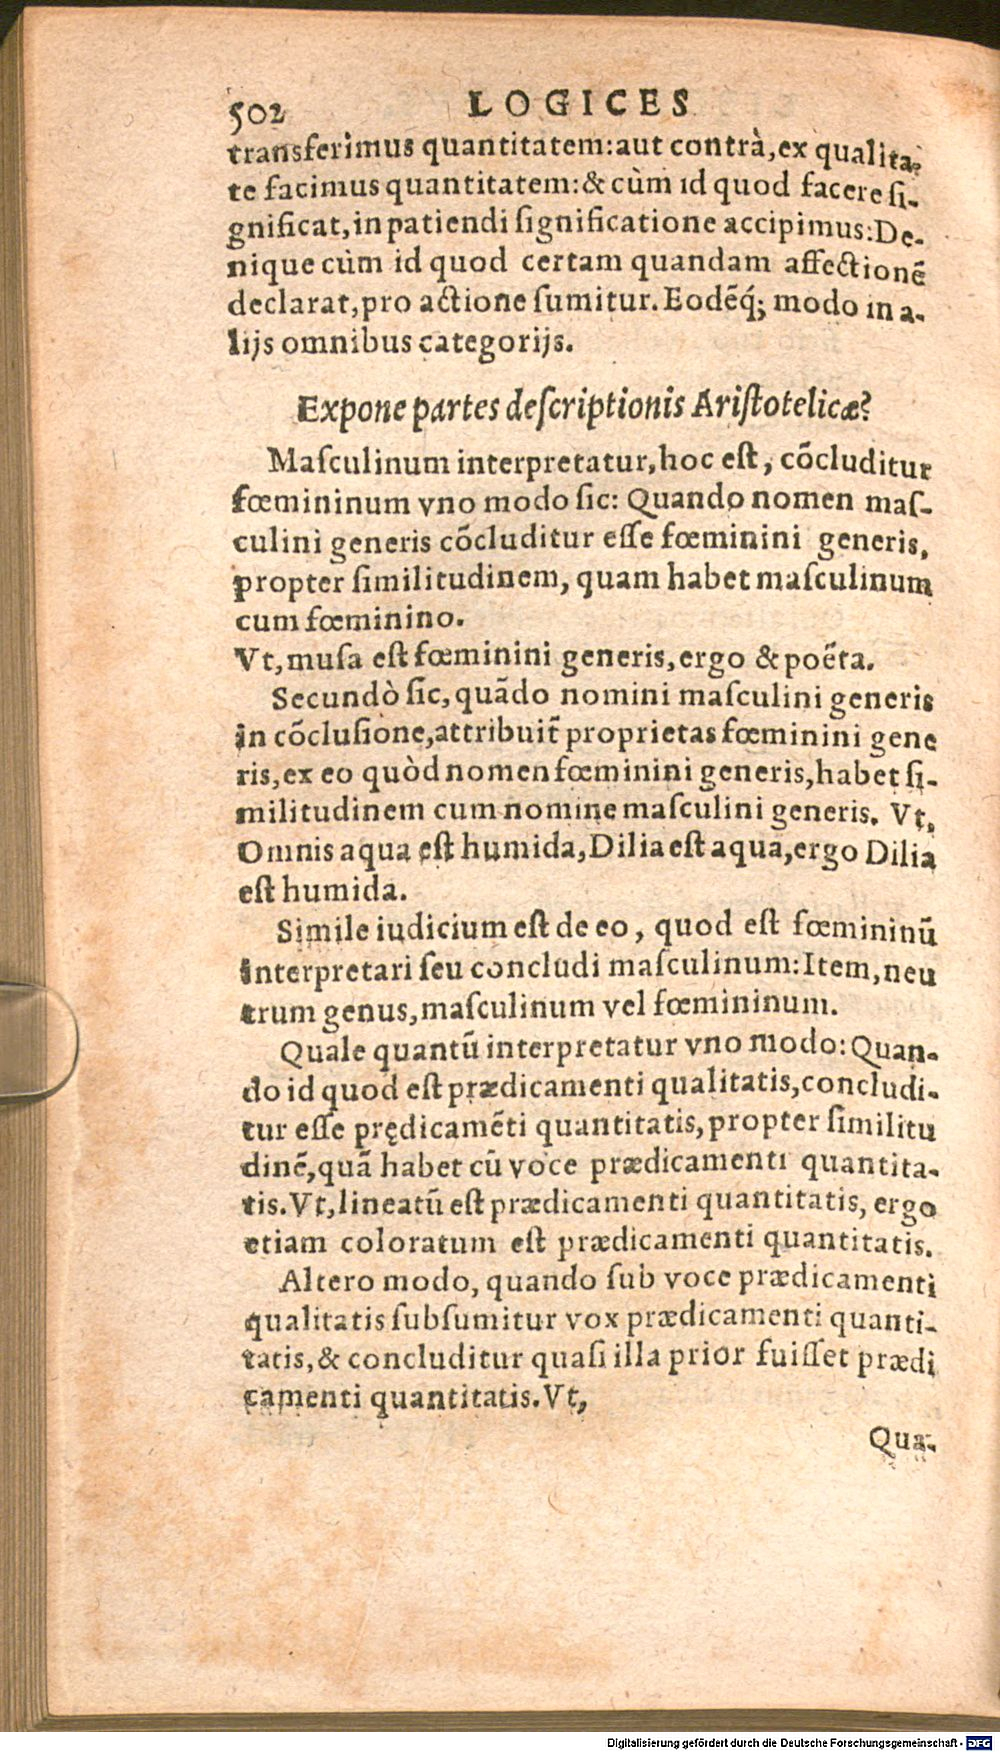 502 LOGICES
transferimus quantitatem: aut contrà, ex qualita-
te facimus quantitatem: & cùm id quod facere ſi-
gnificat, in patiendi ſignificatione accipimus: De-
nique cùm id quod certam quandam affectionē
declarat, pro actione ſumitur. Eodēq́; modo in a-
lijs omnibus categorijs.
Expone partes deſcriptionis Ariſtotelicæ?
Maſculinum interpretatur, hoc eſt, cōcluditur
fœmininum vno modo ſic: Quando nomen maſ-
culini generis cōcluditur eſſe fœminini generis,
propter ſimilitudinem, quam habet maſculinum
cum fœminino.
Vt, muſa eſt fœminini generis, ergo & poëta.
Secundò ſic, quādo nomini maſculini generis
in cōcluſione, attribuit̄ proprietas fœminini gene
ris, ex eo quòd nomen fœminini generis, habet ſi-
militudinem cum nomine maſculini generis. Vt,
Omnis aqua eſt humida, Dilia eſt aqua, ergo Dilia
eſt humida.
Simile iudicium eſt de eo, quod eſt fœmininū
interpretari ſeu concludi maſculinum: Item, neu
trum genus, maſculinum vel fœmininum.
Quale quantū interpretatur vno modo: Quan-
do id quod eſt prædicamenti qualitatis, concludi-
tur eſſe prędicamēti quantitatis, propter ſimilitu
dinē, quā habet cū voce prædicamenti quantita-
tis. Vt, lineatū eſt prædicamenti quantitatis, ergo
etiam coloratum eſt prædicamenti quantitatis.
Altero modo, quando ſub voce prædicamenti
qualitatis ſubſumitur vox prædicamenti quanti-
tatis, & concluditur quaſi illa prior fuiſſet prædi
camenti quantitatis. Vt,
Qua-
Digitalisierung gefördert durch die Deutsche Forschungsgemeinschaft - DFG